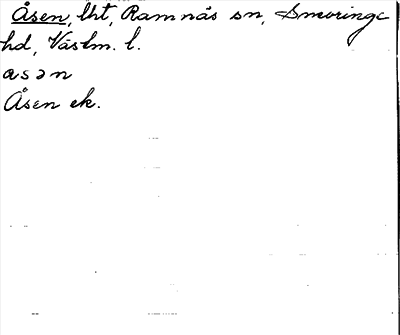 Åsen, lht, Ramnäs sn, Snevringe
hd, Västm. l.
åsən
Åsen ek.